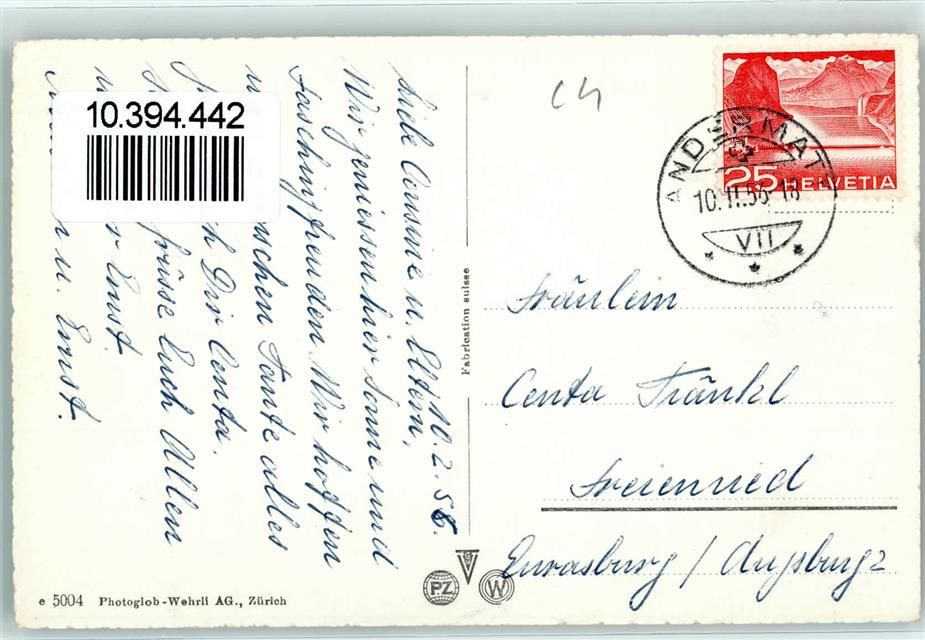 10.394.442
C4
ANDERMATT
10.II.56-18
VII
25 HELVETIA
10.2.56.
Liebe Cousine u. Eltern,
Wir geniessen hier Sonne und
Faschingsfreuden. Wir hoffen
Tante alles
Dir Centa.
grüsse Euch Allen
Ernst.
u. Ernst.
Fabrication suisse
Fräulein
Centa Fränkl
Freienried
Eurasburg / Augsburg 2
PZ
W
e 5004 Photoglob-Wehrli AG., Zürich